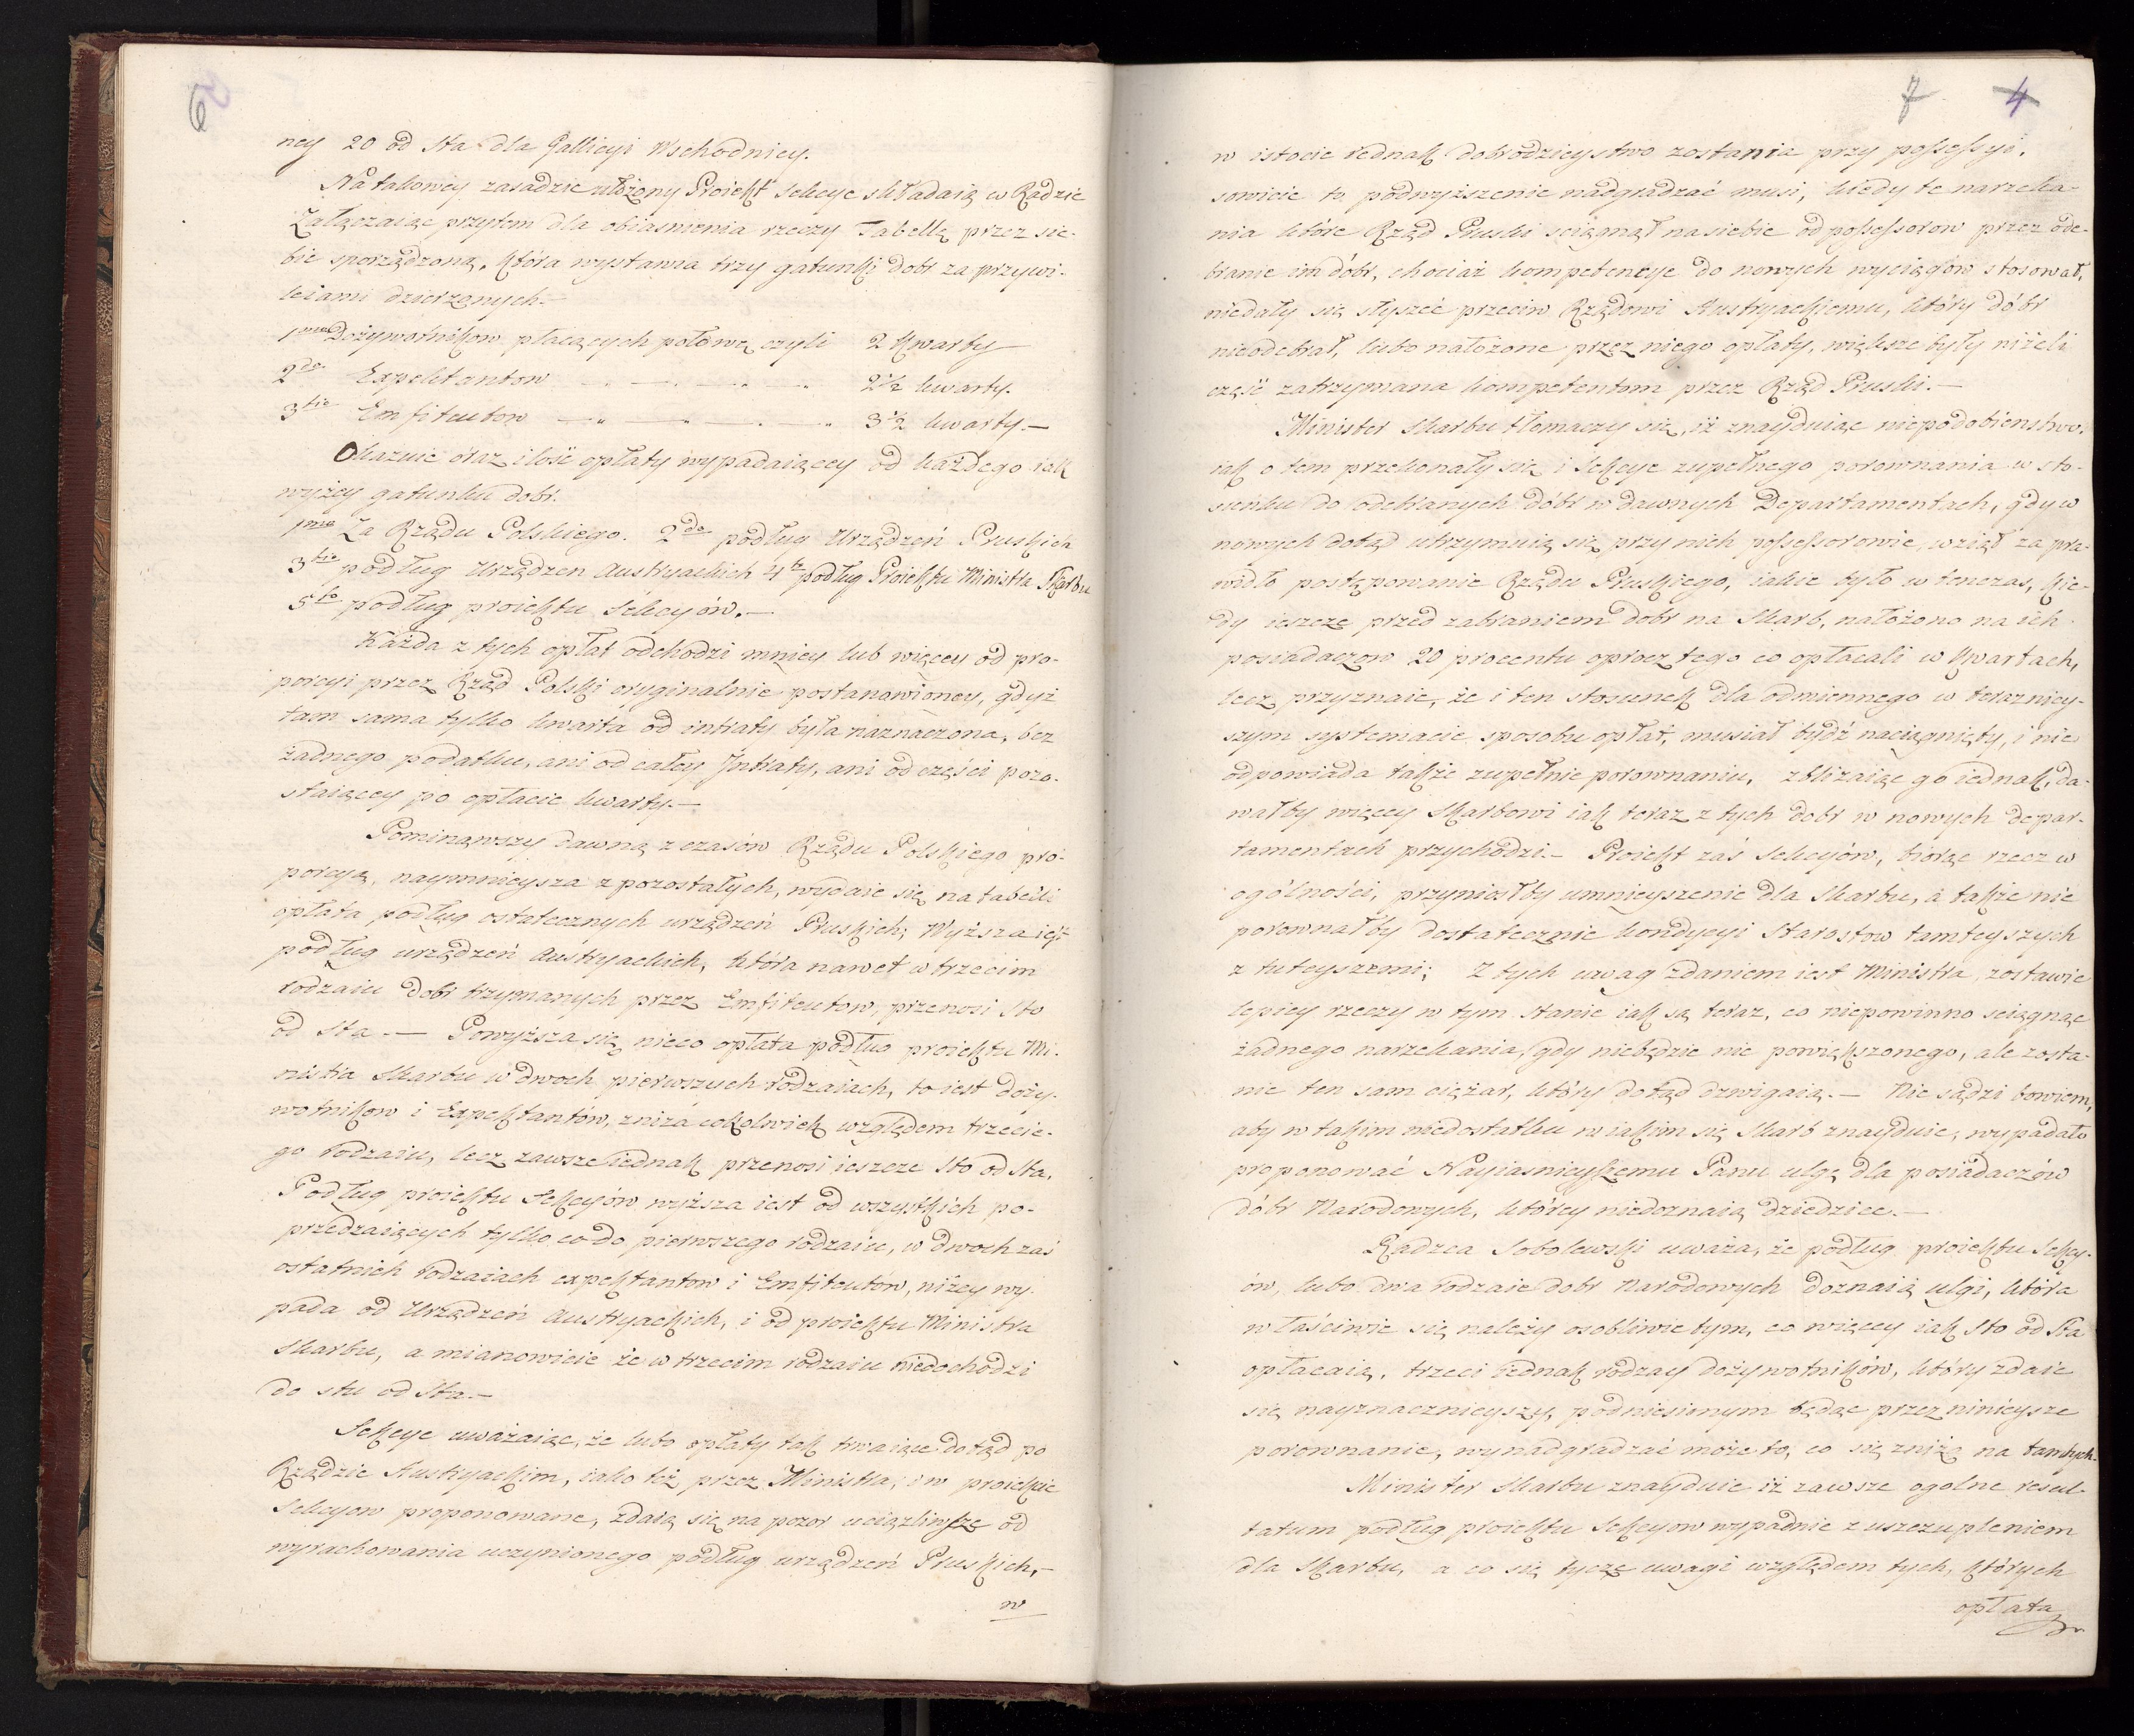 6
ney 20 od Sta dla Gallicyi Wschodniey.
Na takowey zasadzie ułożony Proiekt Sekcye składaią w Radzie
Załączaiąc przytem dla obiasnienia rzeczy Tabellę przez sie-
bie sporządzoną, która wystawia trzy gatunki dobr za przywi-
leiami dzierzonych.—
1mo Dożywotnikow płacących połowę czyli 2 kwarty
2do Expektantow — — — 2½ kwarty.
3tio Emfiteutow — — — 3½ kwarty.—
Okazuie oraz ilość opłaty wypadaiącey od każdego iak
wyżey gatunku dobr.
1mo Za Rządu Polskiego. 2do podług Urządzeń Pruskich
3tio podług Urządzen Austryackich 4to podług Proiektu Ministra Skarbu
5to podług proiektu Sekcyów.—
Każda z tych opłat odchodzi mniey lub więcey od pro-
porcyi przez Rząd Polski oryginalnie postanowioney, gdyż
tam sama tylko kwarta od intraty była naznaczona, bez
żadnego podatku, ani od całey Intraty, ani od części pozo-
staiącey po opłacie kwarty.—
Pominąwszy dawną z czasów Rządu Polskiego pro-
porcyą, naymnieysza z pozostałych, wydaie się na tabelli
opłata podług ostatecznych urządzeń Pruskich; Wyższa iest
podług urządzeń Austryackich, która nawet w trzecim
rodzaiu dobr trzymanych przez Emfiteutow, przenosi Sto
od Sta.— Powyższa się nieco opłata podług proiektu Mi-
nistra Skarbu w dwoch pierwszych rodzaiach, to iest doży-
wotnikow i Expektantów, zniża cokolwiek względem trzecie-
go rodzaiu, lecz zawsze iednak przenosi ieszcze Sto od Sta.
Podług proiektu Sekcyów wyższa iest od wszystkich po-
przedzaiących tylko co do pierwszego rodzaiu, w dwoch zaś
ostatnich rodzaiach expektantow i Emfiteutow, niżey wy-
pada od Urządzeń Austryackich, i od proiektu Ministra
Skarbu, a mianowicie że w trzecim rodzaiu niedochodzi
do stu od Sta.—
Sekcye uważaiąc, że lubo opłaty tak trwaiące dotąd po
Rządzie Austryackim, iako też przez Ministra, i w proiekcie
Sekcyow proponowane, zdaią się na pozor uciążliwsze od
wyrachowania uczynionego podług urządzeń Pruskich,—
w
7 4
w istocie iednak dobrodzieystwo zostania przy possessyi,
sowicie to podwyższenie nadgradzać musi, kiedy te narzeka-
nia które Rząd Pruski sciągnął na siebie od possessorow przez ode-
branie im dóbr, chociaż kompetencye do nowych wyciągów stosował,
niedały się słyszeć przeciw Rządowi Austryackiemu, który dóbr
nieodebrał, lubo nałożone przez niego opłaty, większe były niżeli
część zatrzymana kompetentom przez Rząd Pruski.—
Minister Skarbu tłomaczy się, iż znayduiąc niepodobieństwo,
iak o tem przekonały się i Sekcye zupełnego porownania w sto-
sunku do odebranych dóbr w dawnych Departamentach, gdy w
nowych dotąd utrzymuią się przy nich possessorowie, wziął za pra-
widło postępowanie Rządu Pruskiego, iakie było w tenczas, kie-
dy ieszcze przed zabraniem dobr na Skarb, nałożono na ich
posiadaczow 20 procentu oprocz tego co opłacali w kwartach,
lecz przyznaie, że i ten stosunek dla odmiennego w teraźniey-
szym systemacie sposobu opłat, musiał bydź naciągnięty, i nie
odpowiada także zupełnie porownaniu, zbliżaiąc go iednak, da-
wałby więcey Skarbowi iak teraz z tych dobr w nowych depar-
tamentach przychodzi.— Proiekt zaś Sekcyów, biorąc rzecz w
ogólności, przyniosłby umnieyszenie dla Skarbu, a także nie
porownałby dostatecznie kondycyi Starostow tamteyszych
z tuteyszemi; Z tych uwag zdaniem iest Ministra, zostawić
lepiey rzeczy w tym stanie iak są teraz, co niepowinno sciągnąć
żadnego narzekania, gdy niebędzie nic powiększonego, ale zosta-
nie ten sam ciężar, który dotąd dzwigaią.— Nie sądzi bowiem,
aby w takim niedostatku w iakim się Skarb znayduie, wypadało
proponować Nayiasnieyszemu Panu ulgę dla posiadaczów
dóbr Narodowych, którey niedoznaią dziedzice.—
Radzca Sobolewski uważa, że podług proiektu Sekcy-
ów, lubo dwa rodzaie dobr Narodowych doznaią ulgi, która
właściwie się należy osobliwie tym, co więcey iak Sto od Sta
opłacaią, trzeci iednak rodzay dożywotników, który zdaie
się nayznacznieyszy, podniesionym będąc przez ninieysze
porownanie, wynadgradzać może to, co się zniża na tamtych.
Minister Skarbu znayduie iż zawsze ogolne resul-
tatum podług proiektu Sekcyow wypadnie z uszczupleniem
dla Skarbu, a co się tycze uwagi względem tych, których
opłata